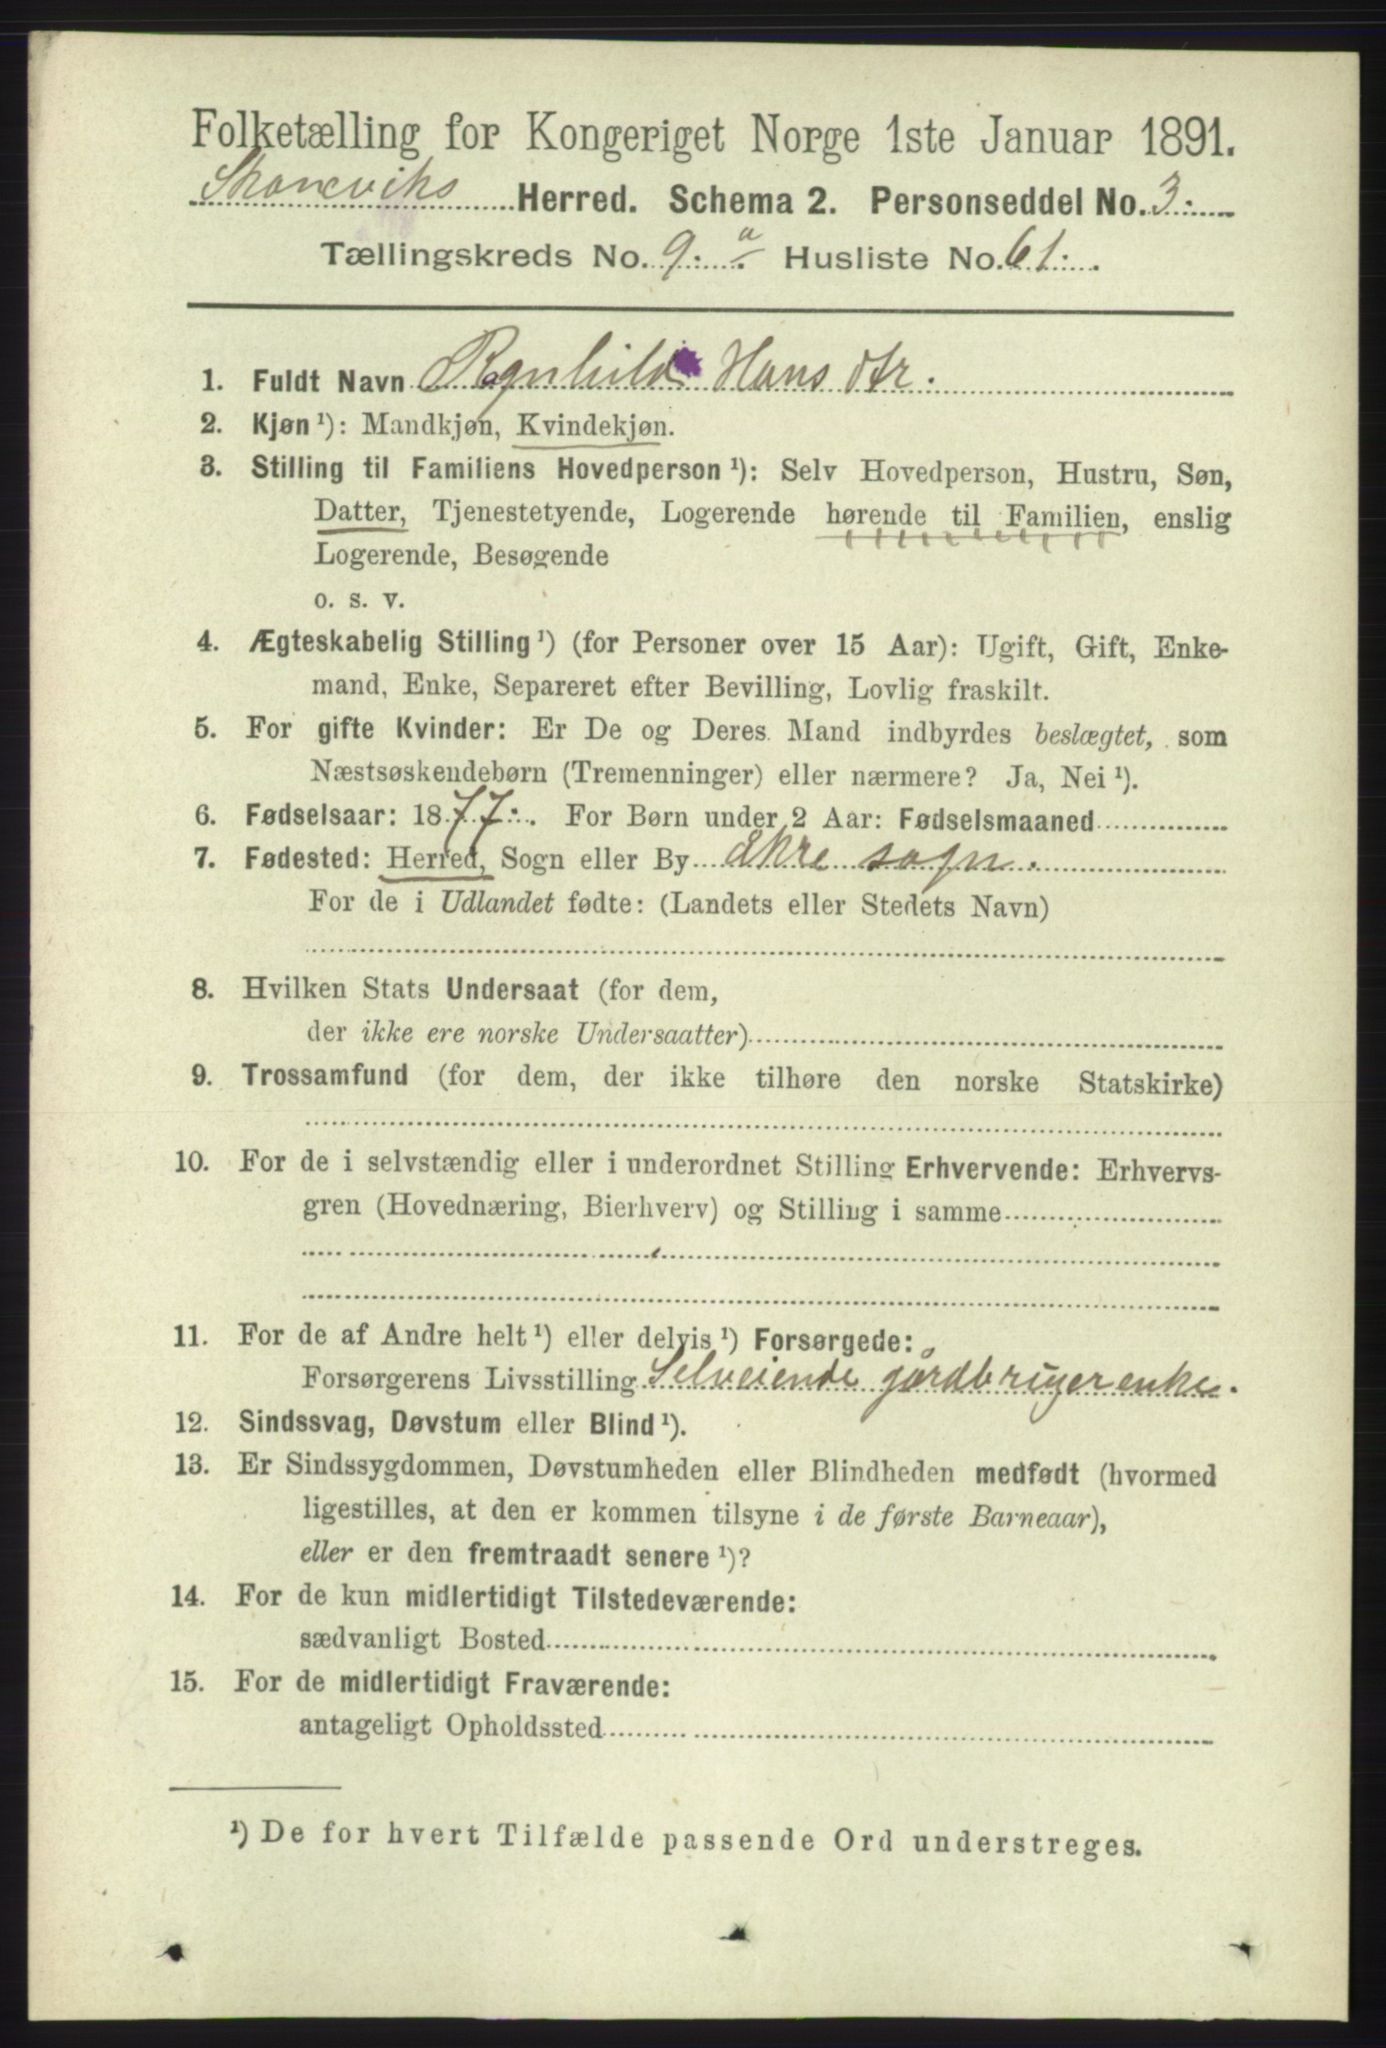 Folketælling for Kongeriget Norge 1ste Januar 1891.
Skoneviks Herred. Schema 2. Personseddel No. 3.
Tællingskreds No. 9. a Husliste No. 61.
1. Fuldt Navn Ragnhild Hans dtr.
2. Kjøn ¹): Mandkjøn, Kvindekjøn.
3. Stilling til Familiens Hovedperson ¹): Selv Hovedperson, Hustru, Søn,
Datter, Tjenestetyende, Logerende hørende til Familien, enslig
Logerende, Besøgende
o. s. v.
4. Ægteskabelig Stilling ¹) (for Personer over 15 Aar): Ugift, Gift, Enke-
mand, Enke, Separeret efter Bevilling, Lovlig fraskilt.
5. For gifte Kvinder: Er De og Deres Mand indbyrdes beslægtet, som
Næstsøskendebørn (Tremenninger) eller nærmere? Ja, Nei ¹).
6. Fødselsaar: 1877. For Børn under 2 Aar: Fødselsmaaned
7. Fødested: Herred, Sogn eller By Ekre sogn.
For de i Udlandet fødte: (Landets eller Stedets Navn)
8. Hvilken Stats Undersaat (for dem,
der ikke ere norske Undersaatter)
9. Trossamfund (for dem, der ikke tilhøre den norske Statskirke)
10. For de i selvstændig eller i underordnet Stilling Erhvervende: Erhvervs-
gren (Hovednæring, Bierhverv) og Stilling i samme
11. For de af Andre helt ¹) eller delvis ¹) Forsørgede:
Forsørgerens Livsstilling Selveiende gårdbrugerenke.
12. Sindssvag, Døvstum eller Blind ¹).
13. Er Sindssygdommen, Døvstumheden eller Blindheden medfødt (hvormed
ligestilles, at den er kommen tilsyne i de første Barneaar),
eller er den fremtraadt senere ¹)?
14. For de kun midlertidigt Tilstedeværende:
sædvanligt Bosted
15. For de midlertidigt Fraværende:
antageligt Opholdssted
¹) De for hvert Tilfælde passende Ord understreges.